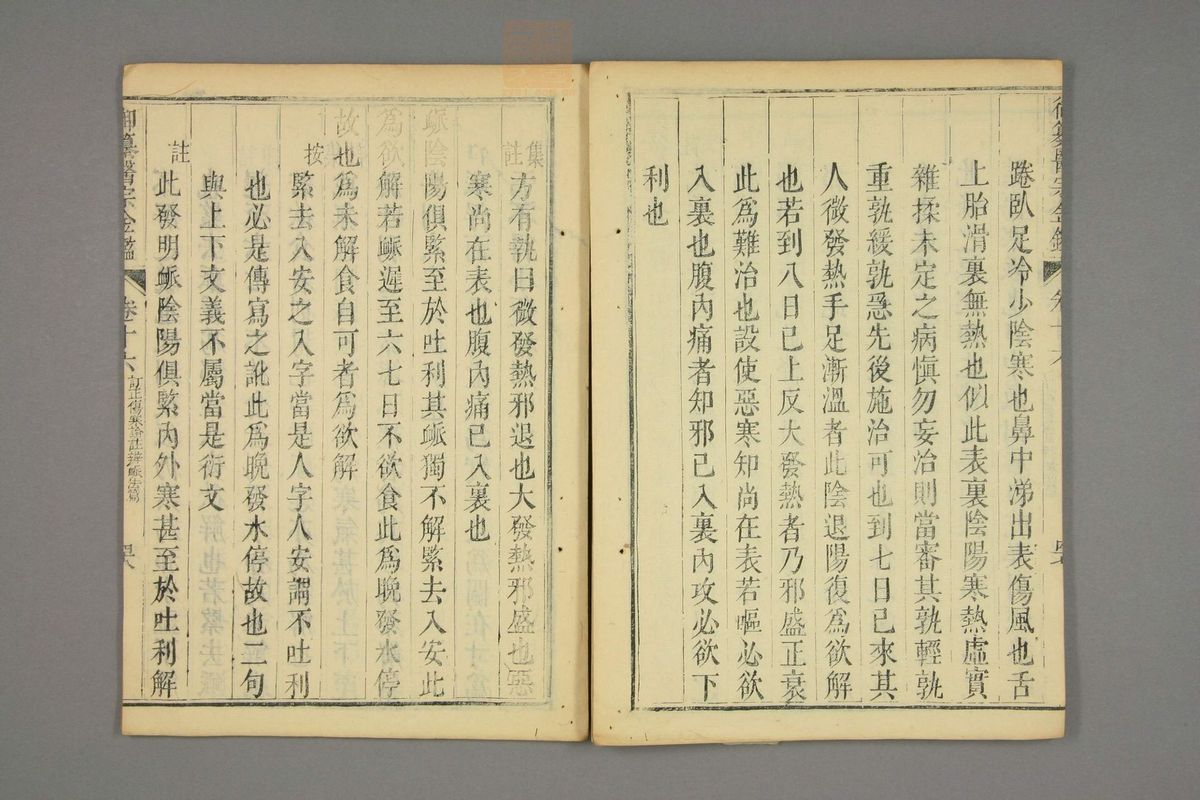 踡臥足冷少陰寒也鼻中涕出表傷風也舌
上胎滑裏無熱也似此表裏陰陽寒熱虛實
雜揉未定之病愼勿妄治則當審其孰輕孰
重孰緩孰急先後施治可也到七日已來其
人微發熱手足漸溫者此陰退陽復爲欲解
也若到八日已上反大發熱者乃邪盛正衰
此爲難治也設使惡寒知尚在表若嘔必欲
入裏也腹內痛者知邪已入裏內攻必欲下
利也
集註
方有執曰微發熱邪退也大發熱邪盛也惡
寒尚在表也腹內痛已入裏也
脈陰陽俱緊至於吐利其脈獨不解緊去入安此
爲欲解若脈遲至六七日不欲食此爲晚發水停
故也爲未解食自可者爲欲解
按
緊去入安之入字當是人字人安謂不吐利
也必是傳寫之訛此爲晚發水停故也二句
與上下文義不屬當是衍文
註
此發明脈陰陽俱緊內外寒甚至於吐利解
御纂醫宗金鑑
卷十六
訂正傷寒論註辨脈法篇